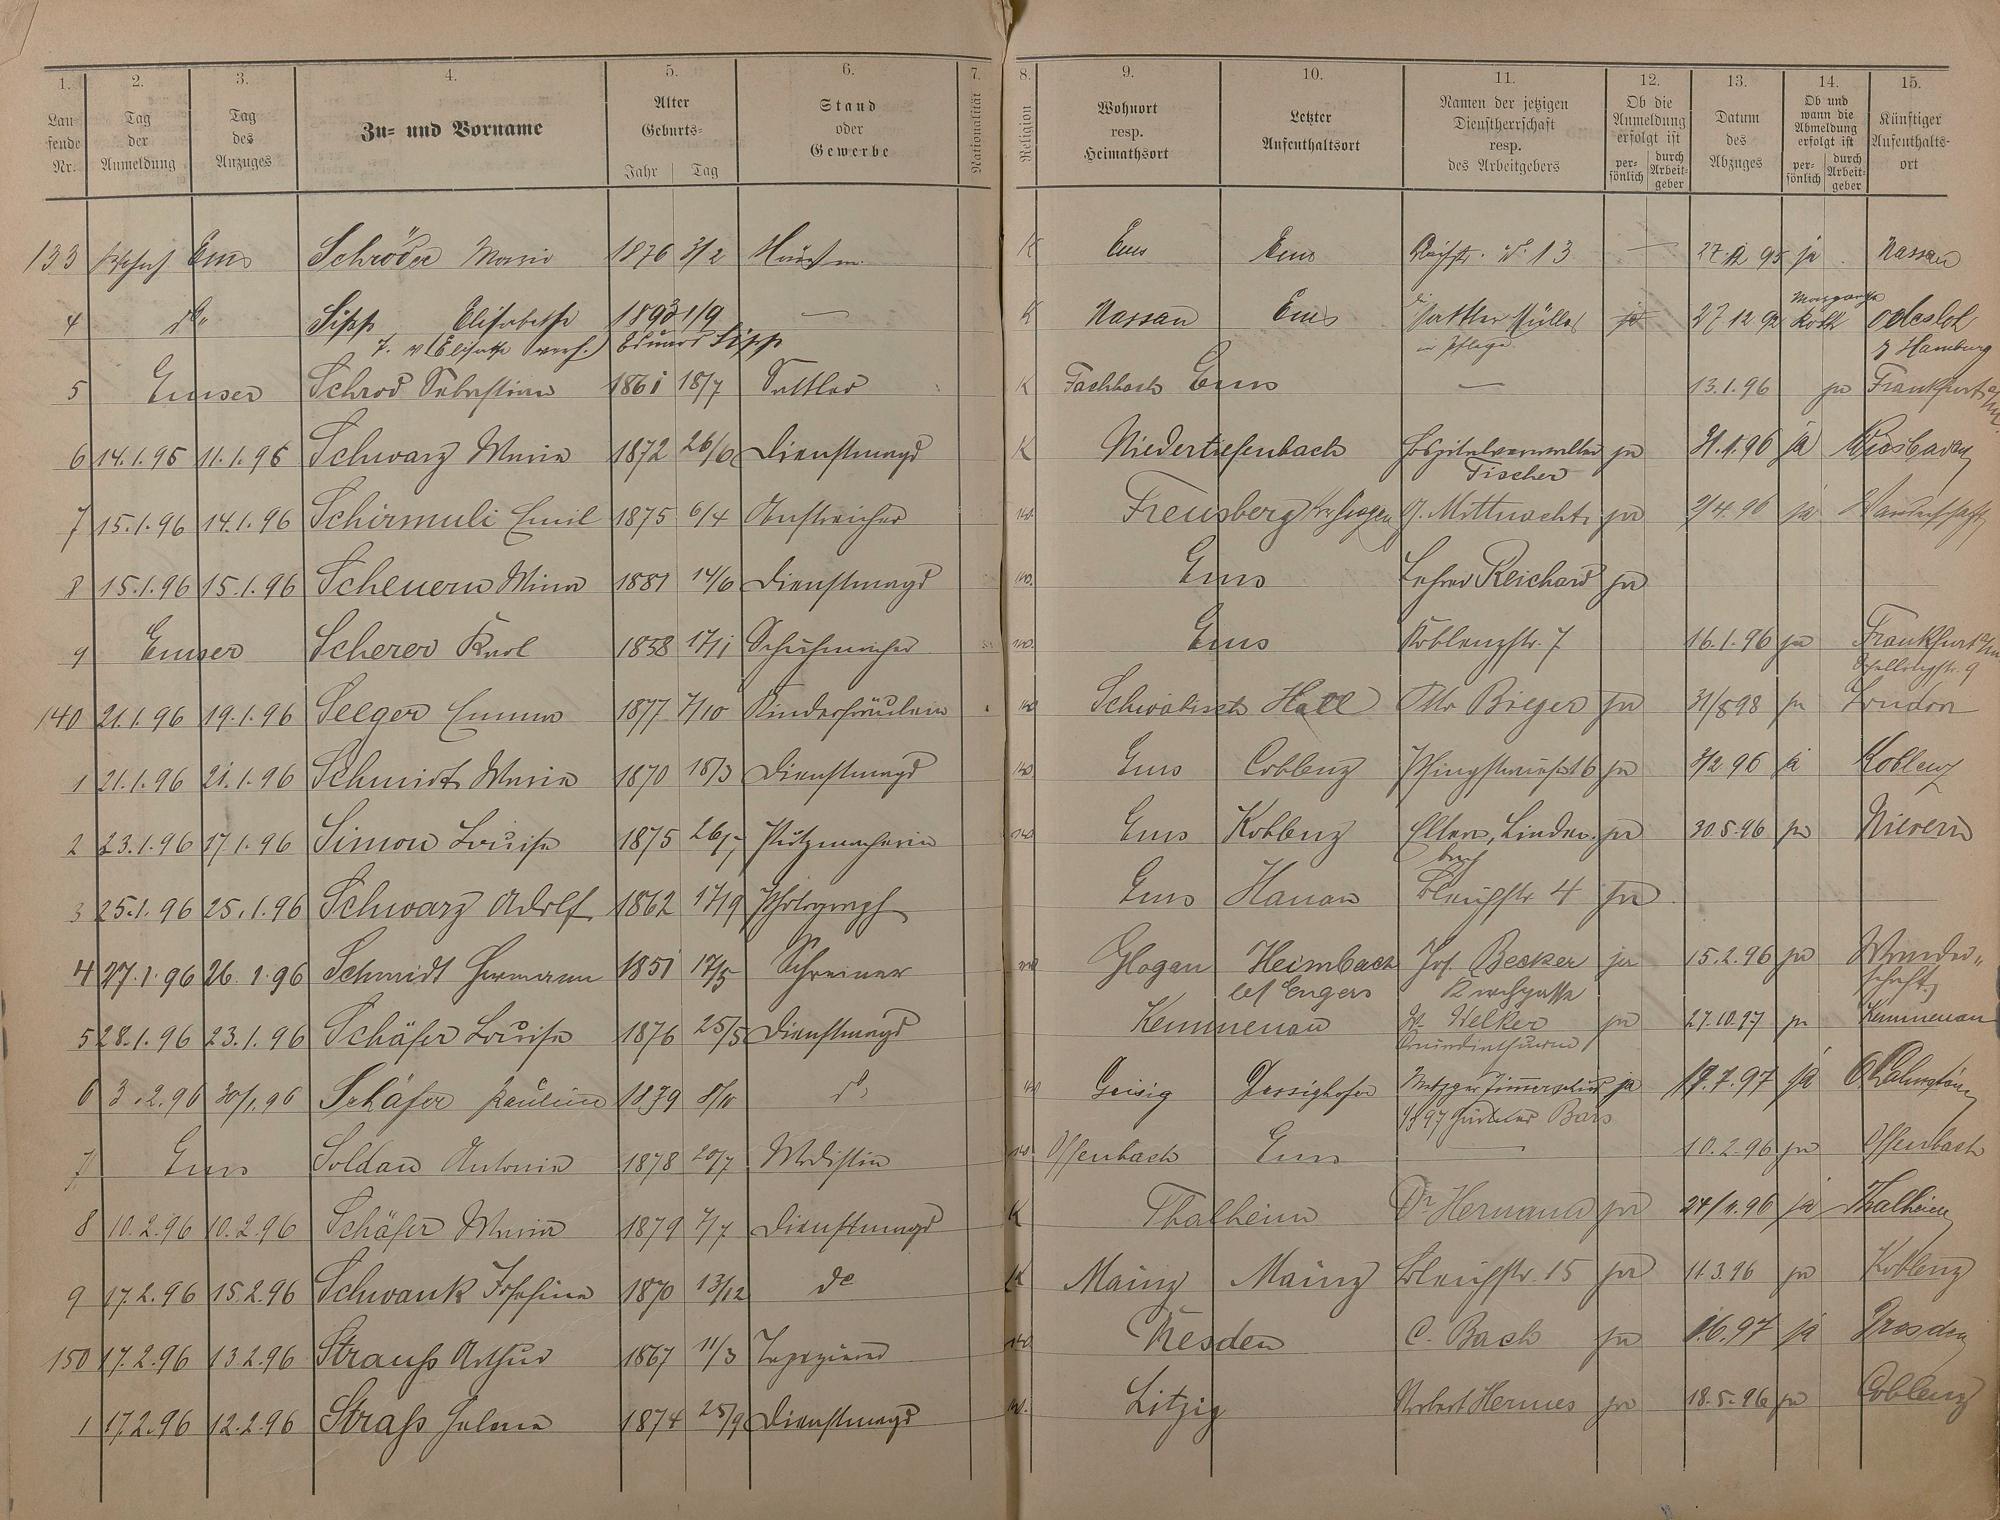 1. 2. 3. 4. 5. 6. 7. 8. 9. 10. 11. 12. 13. 14. 15.
Lau-
fende
Nr.
Tag
der
Anmeldung
Tag
des
Anzuges
Zu- und Vorname
Alter
Geburts-
Jahr Tag
Stand
oder
Gewerbe
Nationalität
Religion
Wohnort
resp.
Heimathsort
Letzter
Aufenthaltsort
Namen der jetzigen
Dienstherrschaft
resp.
des Arbeitgebers
Ob die
Anmeldung
erfolgt ist
per-
sönlich
durch
Arbeit-
geber
Datum
des
Abzuges
Ob und
wann die
Abmeldung
erfolgt ist
per-
sönlich
durch
Arbeit-
geber
Künftiger
Aufenthalts-
ort
133 Ems Schröder Maria 1876 3/2 K Ems Ems No 13 — 27.12 95 ja Nassau
4 do Sipp Elisabethe 1893 1/9 — K Nassau Ems Sattler Müller ja 27 12 92 Roth Odesloh
Eduard Sipp in Pflege Hamburg
5 Emser Schrod Sebastian 1861 18/7 Sattler K Fachbach Ems — 13.1.96 ja Frankfurt a/M.
6 14.1.96 11.1.96 Schwarz Maria 1872 26/6 Dienstmagd K Niedertiefenbach Hospitalverwalter ja 31.1.96 ja Wiesbaden
Fischer
7 15.1.96 14.1.96 Schirmuli Emil 1875 6/4 Anstreicher Freusberg J. Mittnacht ja 2/4.96 ja Wanderschaft
8 15.1.96 15.1.96 Scheuern Mina 1881 14/6 Dienstmagd Ems Lehrer Reichard ja
9 Emser Scherer Karl 1858 17/1 Schuhmacher Ems Koblenzstr. 7 16.1.96 ja Frankfurt a/M
140 21.1.96 19.1.96 Seeger Emma 1877 7/10 Kinderfräulein Schwäbisch Hall Otto Bieger ja 31/8 98 ja London
1 21.1.96 21.1.96 Schmidt Maria 1870 18/3 Dienstmagd Ems Coblenz ja 3/2 96 ja Koblenz
2 23.1.96 17.1.96 Simon Louise 1875 26/7 Putzmacherin Ems Koblenz Eltern, Linden- ja 30.5.96 ja Nievern
bach
3 25.1.96 25.1.96 Schwarz Adolf 1862 17/9 Photograph Ems Hanau Bleichstr. 4 ja
4 27.1.96 26.1.96 Schmidt Hermann 1851 17/5 Schreiner Glogau Heimbach Jos. Becker ja 15.2.96 ja Wander-
bei Engers Kirchgasse schaft
5 28.1.96 23.1.96 Schäfer Louise 1876 25/5 Dienstmagd Kemmenau W. Welker ja 27.10.97 ja Kemmenau
6 3.2.96 30/1.96 Schäfer Pauline 1879 8/10 do Geisig Dessighofen Metzger Zimmerschied ja 17.7.97 ja O'Lahnstein
7 Ems Soldan Antonia 1878 20/7 Modistin Offenbach Ems — 10.2.96 ja Offenbach
8 10.2.96 10.2.96 Schäfer Maria 1879 7/7 Dienstmagd K Thalheim Dr Hermann ja 24/11.96 ja Thalheim
9 17.2.96 15.2.96 Schwank Josefine 1870 13/12 do K Mainz Mainz Bleichstr. 15 ja 11.3.96 ja Koblenz
150 17.2.96 13.2.96 Strauß Arthur 1867 11/3 Tapezierer Dresden C. Bach ja 1.6.97 ja Dresden
1 17.2.96 12.2.96 Straß Helena 1874 25/9 Dienstmagd Litzig Norbert Hermes ja 18.5.96 ja Coblenz